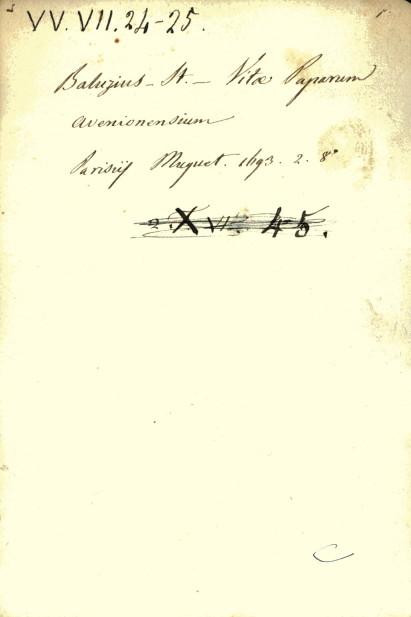 VV. VII. 24-25.
Baluzius - St. - Vitæ Paparum
avenionensium
Parisiis Muguet. 1693. 2. 8º
2. X VI. 45.
C